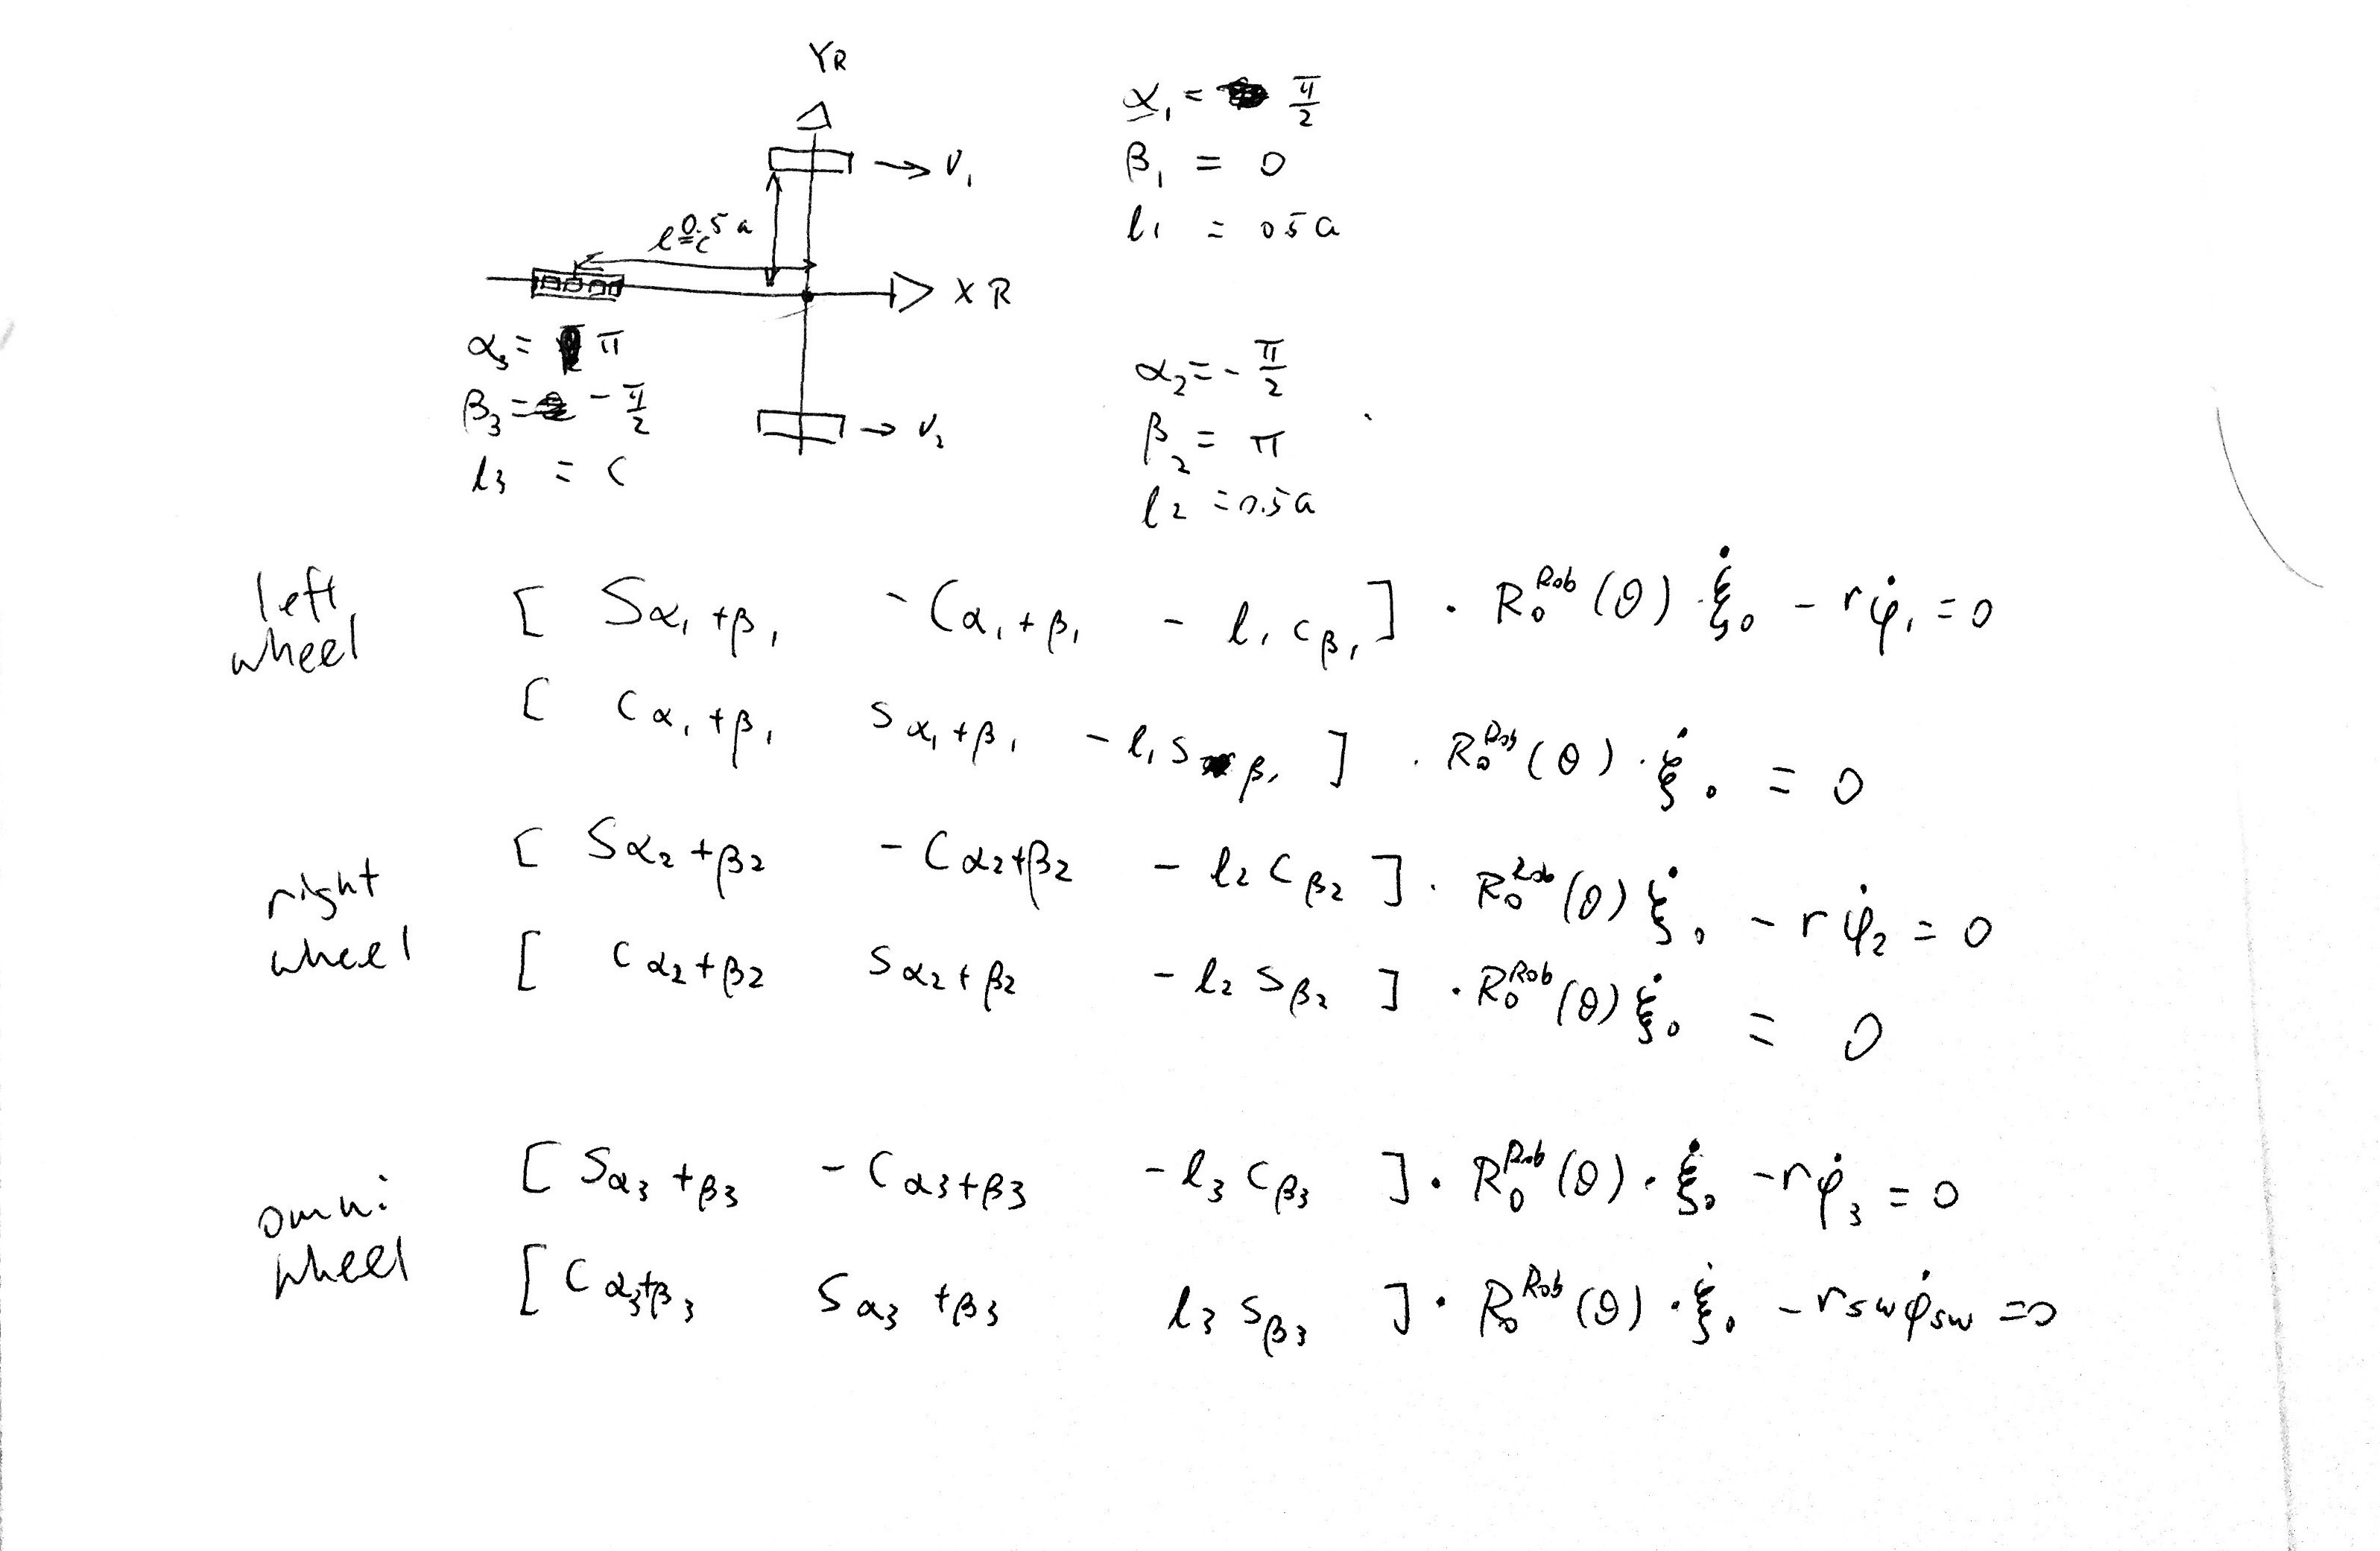 YR
α₁ = π/2
V₁
β₁ = 0
0.5 a
l₁ = 05a
l = c
X R
α₃ = π
α₂ = - π/2
β₃ = - π/2
V₂
β₂ = π
l₃ = c
l₂ = 0.5a
left wheel
[ Sα₁+β₁ -Cα₁+β₁ - l₁ cβ₁ ] · R₀ᴿᵒᵇ (θ) · ξ̇₀ - rφ̇₁ = 0
[ Cα₁+β₁ Sα₁+β₁ - l₁ sβ₁ ] · R₀ᴿᵒᵇ (θ) · ξ̇₀ = 0
right wheel
[ Sα₂+β₂ -Cα₂+β₂ - l₂ Cβ₂ ] · R₀ᴿᵒᵇ (θ) ξ̇₀ - rφ̇₂ = 0
[ Cα₂+β₂ Sα₂+β₂ - l₂ Sβ₂ ] · R₀ᴿᵒᵇ (θ) ξ̇₀ = 0
omni wheel
[ Sα₃+β₃ -Cα₃+β₃ - l₃ Cβ₃ ] · R₀ᴿᵒᵇ (θ) · ξ̇₀ - rφ̇₃ = 0
[ Cα₃+β₃ Sα₃+β₃ l₃ Sβ₃ ] · R₀ᴿᵒᵇ (θ) · ξ̇₀ - rsw φ̇sw = 0